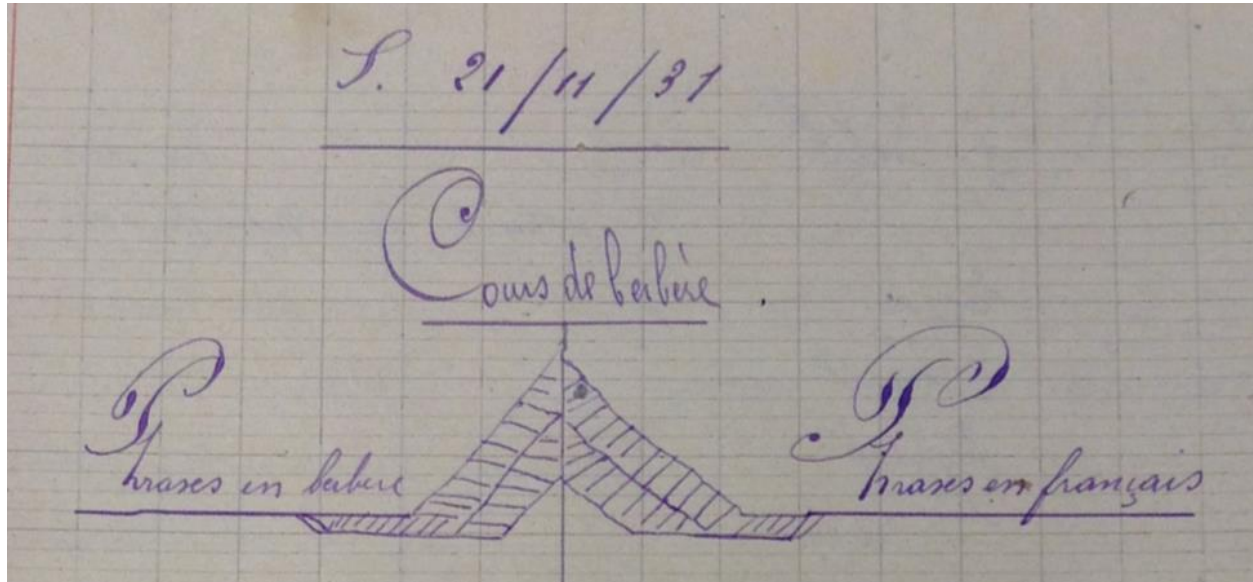 S. 21/11/31
Cours de berbère.
Phrases en berbere
Phrases en français